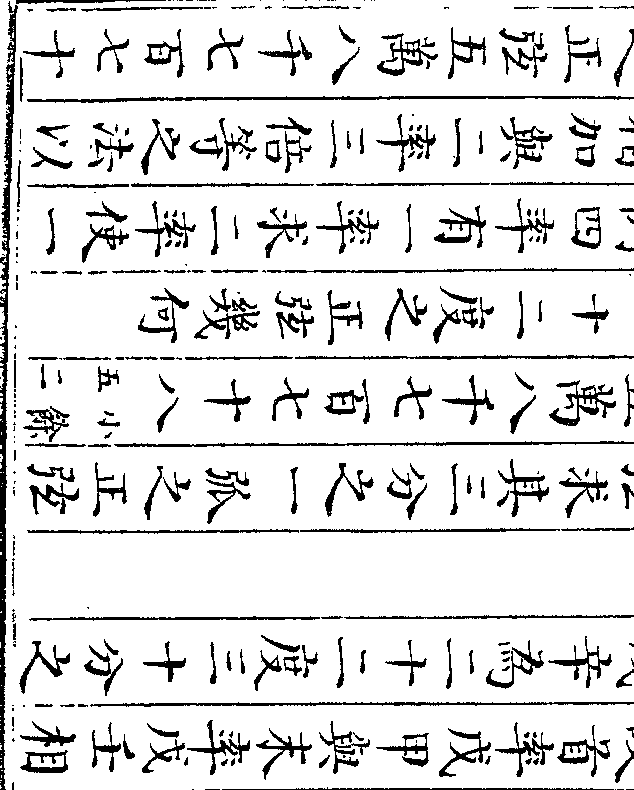 首率戊甲與末率戊壬相
辛爲二十二度三十分之
求其三分之一弧之正弦
五萬八千七百七十八小餘五二
十二度之正弦幾何
四率有一率求二率使一
加與二率三倍等之法以
正弦五萬八千七百七十